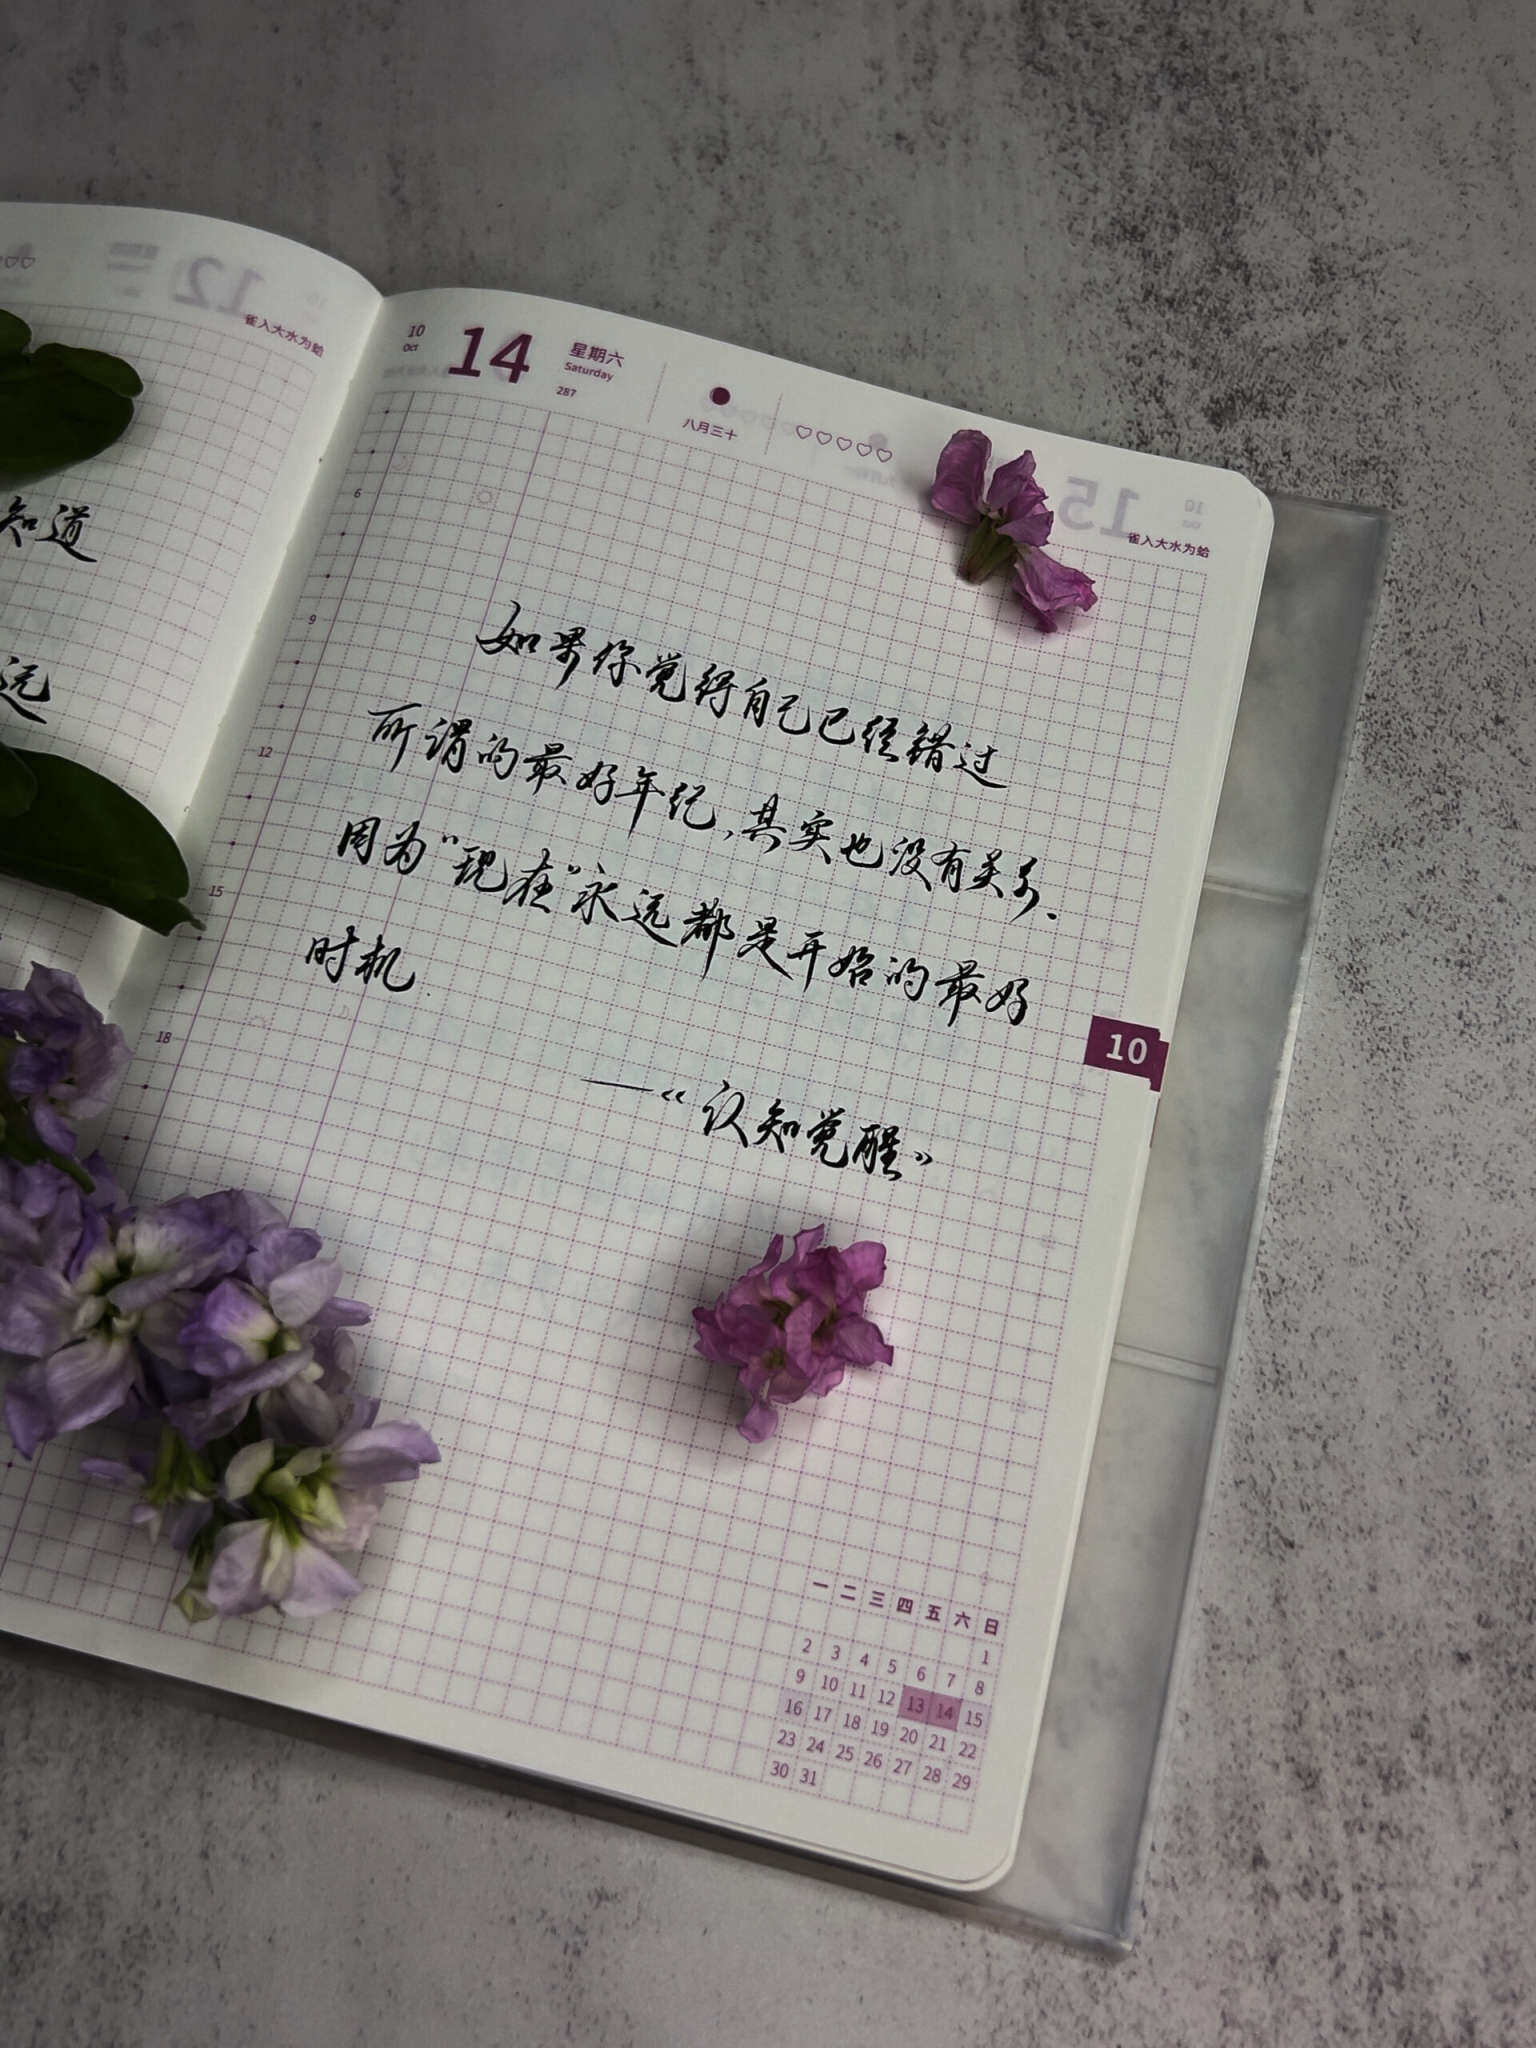 雀入大水为蛤
知道
远
10
Oct
14
星期六
Saturday
287
八月三十
雀入大水为蛤
6
9
12
15
18
如果你觉得自己已经错过
所谓的最好年纪,其实也没有关系.
因为"现在"永远都是开始的最好
时机.
——《认知觉醒》
10
一 二 三 四 五 六 日
1
2 3 4 5 6 7 8
9 10 11 12 13 14 15
16 17 18 19 20 21 22
23 24 25 26 27 28 29
30 31